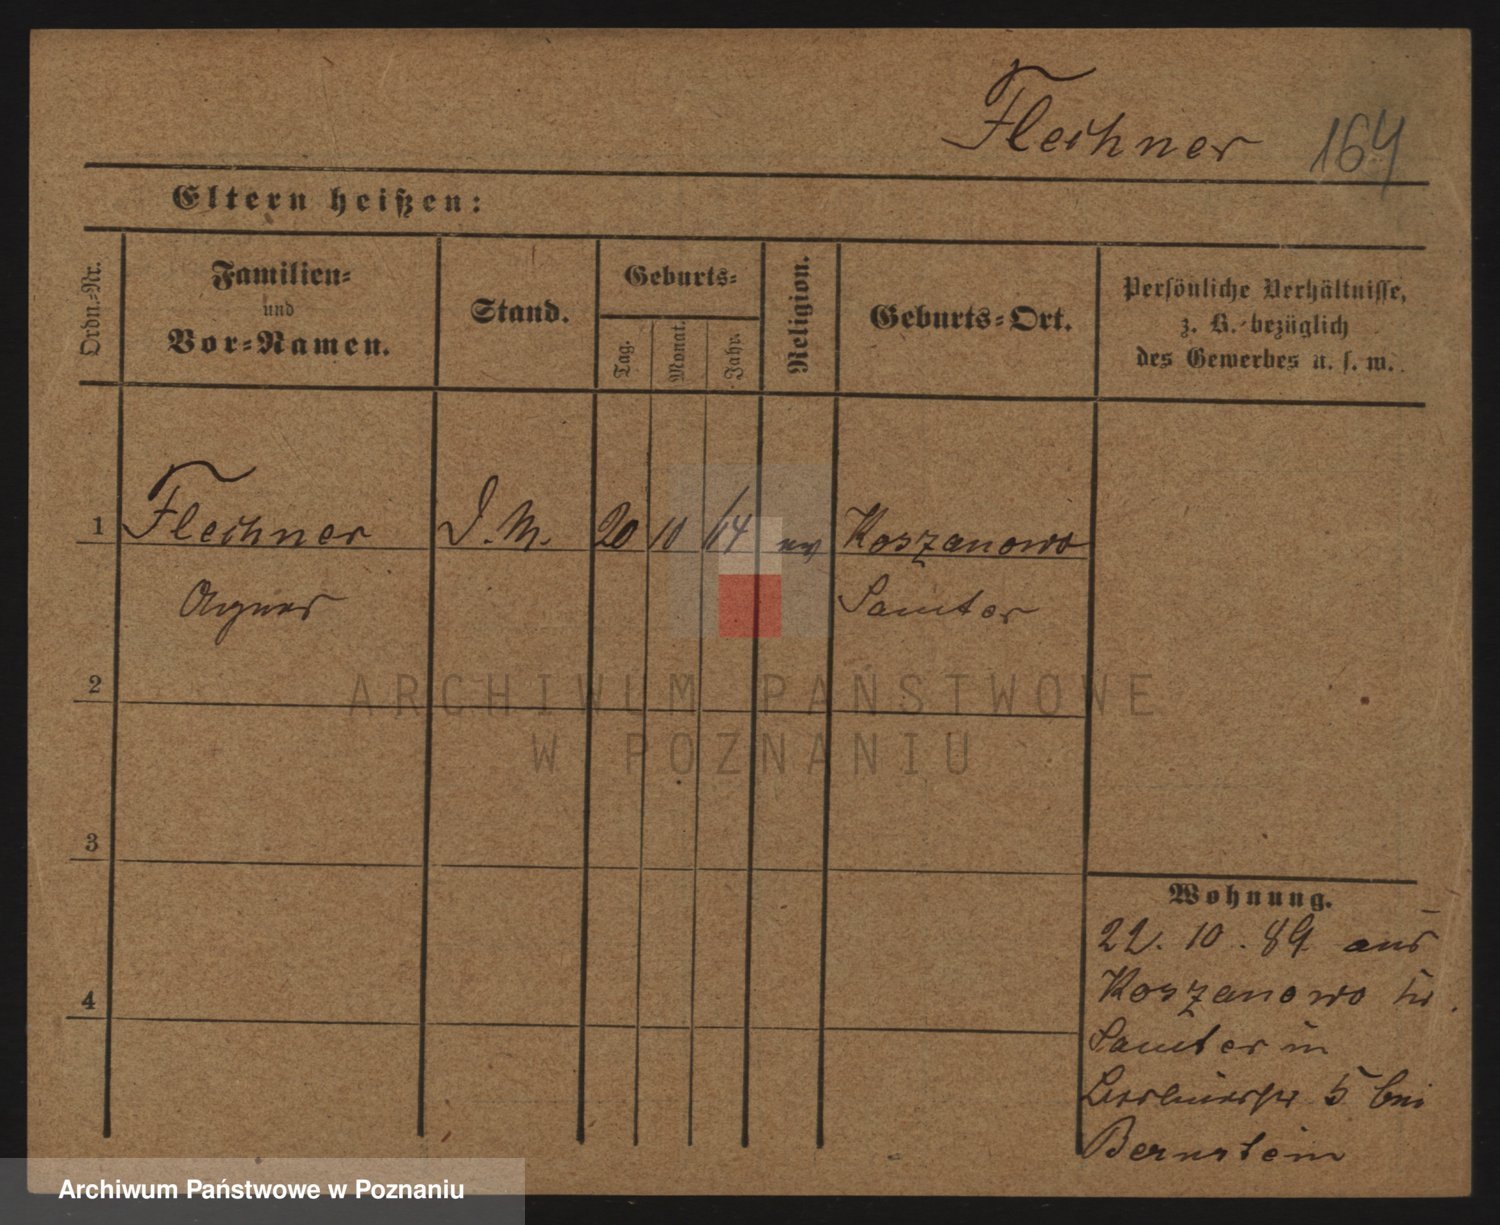 Flechner 164
Eltern heißen:
Ordn.-Nr.
Familien-
und
Vor-Namen.
Stand.
Geburts-
Tag.
Monat.
Jahr.
Religion.
Geburts-Ort.
Persönliche Verhältnisse,
z. B. bezüglich
des Gewerbes u. s. w.
1 Flechner D. M. 20 10 74 ev Koszanowo
Agnes Samter
2
ARCHIWUM PAŃSTWOWE
W POZNANIU
3
Wohnung.
22. 10. 89 aus
Koszanowo Kr.
4
Samter in
5 bei
Bernstein
Archiwum Państwowe w Poznaniu